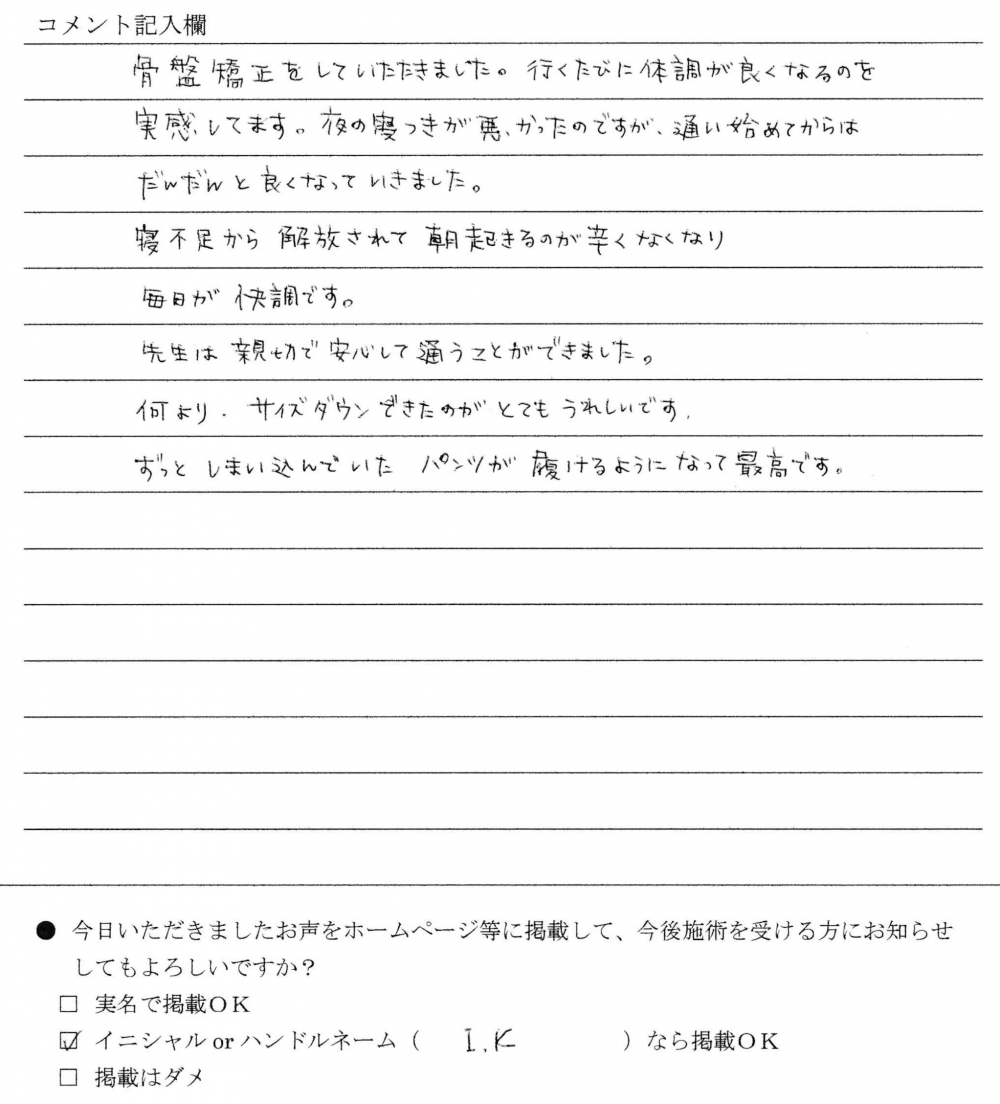 コメント記入欄
骨盤矯正をしていただきました。行くたびに体調が良くなるのを
実感してます。夜の寝つきが悪かったのですが、通い始めてからは
だんだんと良くなっていきました。
寝不足から解放されて朝起きるのが辛くなくなり
毎日が快調です。
先生は親切で安心して通うことができました。
何より、サイズダウンできたのがとてもうれしいです。
ずっとしまい込んでいたパンツが履けるようになって最高です。
● 今日いただきましたお声をホームページ等に掲載して、今後施術を受ける方にお知らせ
してもよろしいですか？
□ 実名で掲載OK
☑ イニシャル or ハンドルネーム（ I.K ）なら掲載OK
□ 掲載はダメ